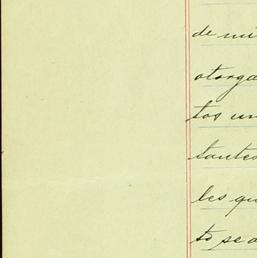 de mi
otorga
tos un
tantes
les qu
to se a